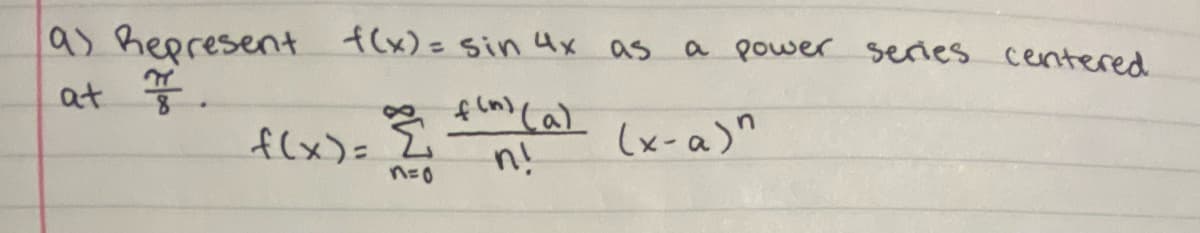 a) Represent f(x) = sin 4x as a power series centered
at π/8.
f(x) = ∞ Σ n=0 f⁽ⁿ⁾(a)/n! (x-a)ⁿ